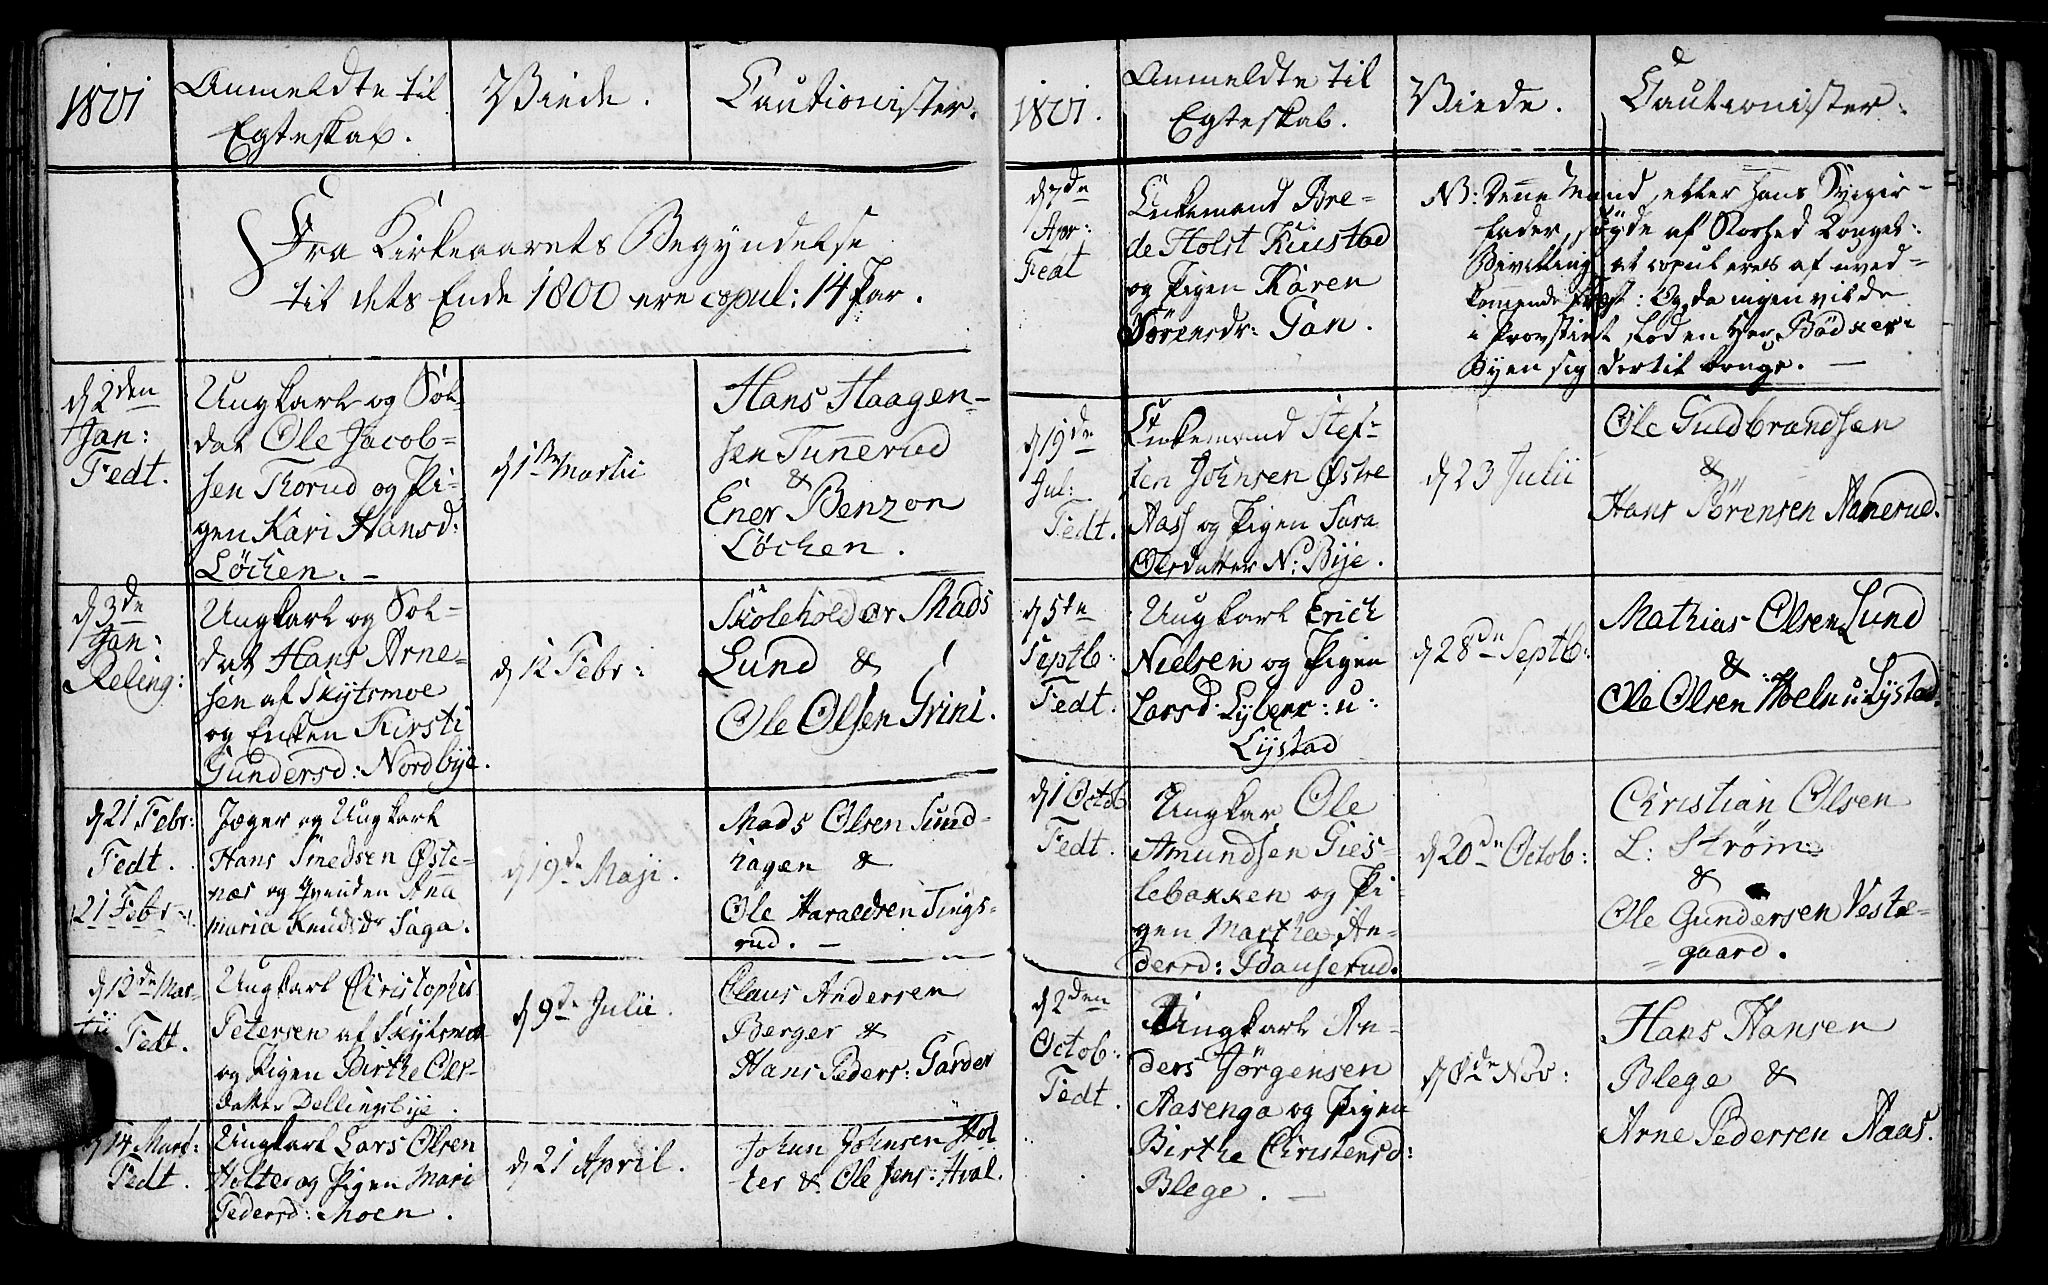 1801
Anmeldte til
Egteskab.
Viede.
Cautionister.
Fra Kirkeaarets Begyndelse
til dets Ende 1800 ere copul: 14 Par.
d 2den
Jan:
Fedt.
Ungkarl og Sol-
dat Ole Jacob-
sen Thorud og Pi-
gen Kari Hansd:
Löchen. -
d 1ste Martii
Hans Haagen-
sen Tunnerud
&
Ener Benzon
Løchen.
d 3de
Jan:
Reling:
Ungkarl og Sol-
dat Hans Arne-
sen af Skytsmoe
og Enken Kirsti
Gundersd: Nordbye.
d 12 Febr:
Skoleholder Mads
Lund &
Ole Olsen Grini.
d 21 Febr:
Fedt.
21 Febr:
Jæger og Ungkarl
Hans Smedsen Øste-
næs og Qvinden Ana
Maria Knudsdr Saga.
d 19de Maji.
Mads Olsen Sund-
hagen &
Ole Haraldsen Tings-
rud. -
d 12de Mar-
tii Fedt.
Ungkarl Christopher
Petersen af Skytsmoe
og Pigen Birthe Oles-
datter Dellingsbye.
d 9de Julii.
Claus Andersen
Berger &
Hans Peders: Garder
d 14 Mart:
Fedt.
Ungkarl Lars Olsen
Holter og Pigen Mari
Pedersd: Moen.
d 21 April.
Johan Johnsen Hol
ter & Ole Jens: Hval.
1801.
Anmeldte til
Egteskab.
Viede.
Cautionister.
d 7de
Apr:
Fedt
Enkemand Bre-
de Holst Kiustad
og Pigen Karen
Sörensdr: Gan.
NB: Denne Mand, efter Hans Sviger-
fader, søgde af Stoltshed Konges:
Bevilling at copuleres af uved-
kommende Præst: Og da ingen vilde
i Provstiet, lod en Her Bödker i
Byen sig dertil bruge. -
d 19de
Jul:
Fedt.
Enkemand Stef-
fen Johnsen Østre
Aass og Pigen Sara
Olesdatter N: Bye.
d 23 Julii
Ole Guldbrandsen
&
Hans Sörensen Aamerud.
d 5te
Septb:
Fedt.
Ungkarl Erich
Nielsen og Pigen
Larsd: Lyberr: u:
Lystad
d 28de Septb:
Mathias Olsen Lund
&
Ole Olsen Moeln u: Lystad.
d 1 Octob
Fedt.
Ungkar Ole
Amundsen Gies-
lebakken og Pi-
gen Martha An-
dersd: Idanserud.
d 20de Octob:
Christian Olsen
L: Strøm
&
Ole Gundersen Veste-
gaard.
d 2den
Octob:
Fedt.
Ungkarl An-
ders Jørgensen
Aasenga og Pigen
Birthe Christensd:
Blege. -
d 8de Nov:
Hans Hansen
Blege &
Arne Pedersen Aaas.